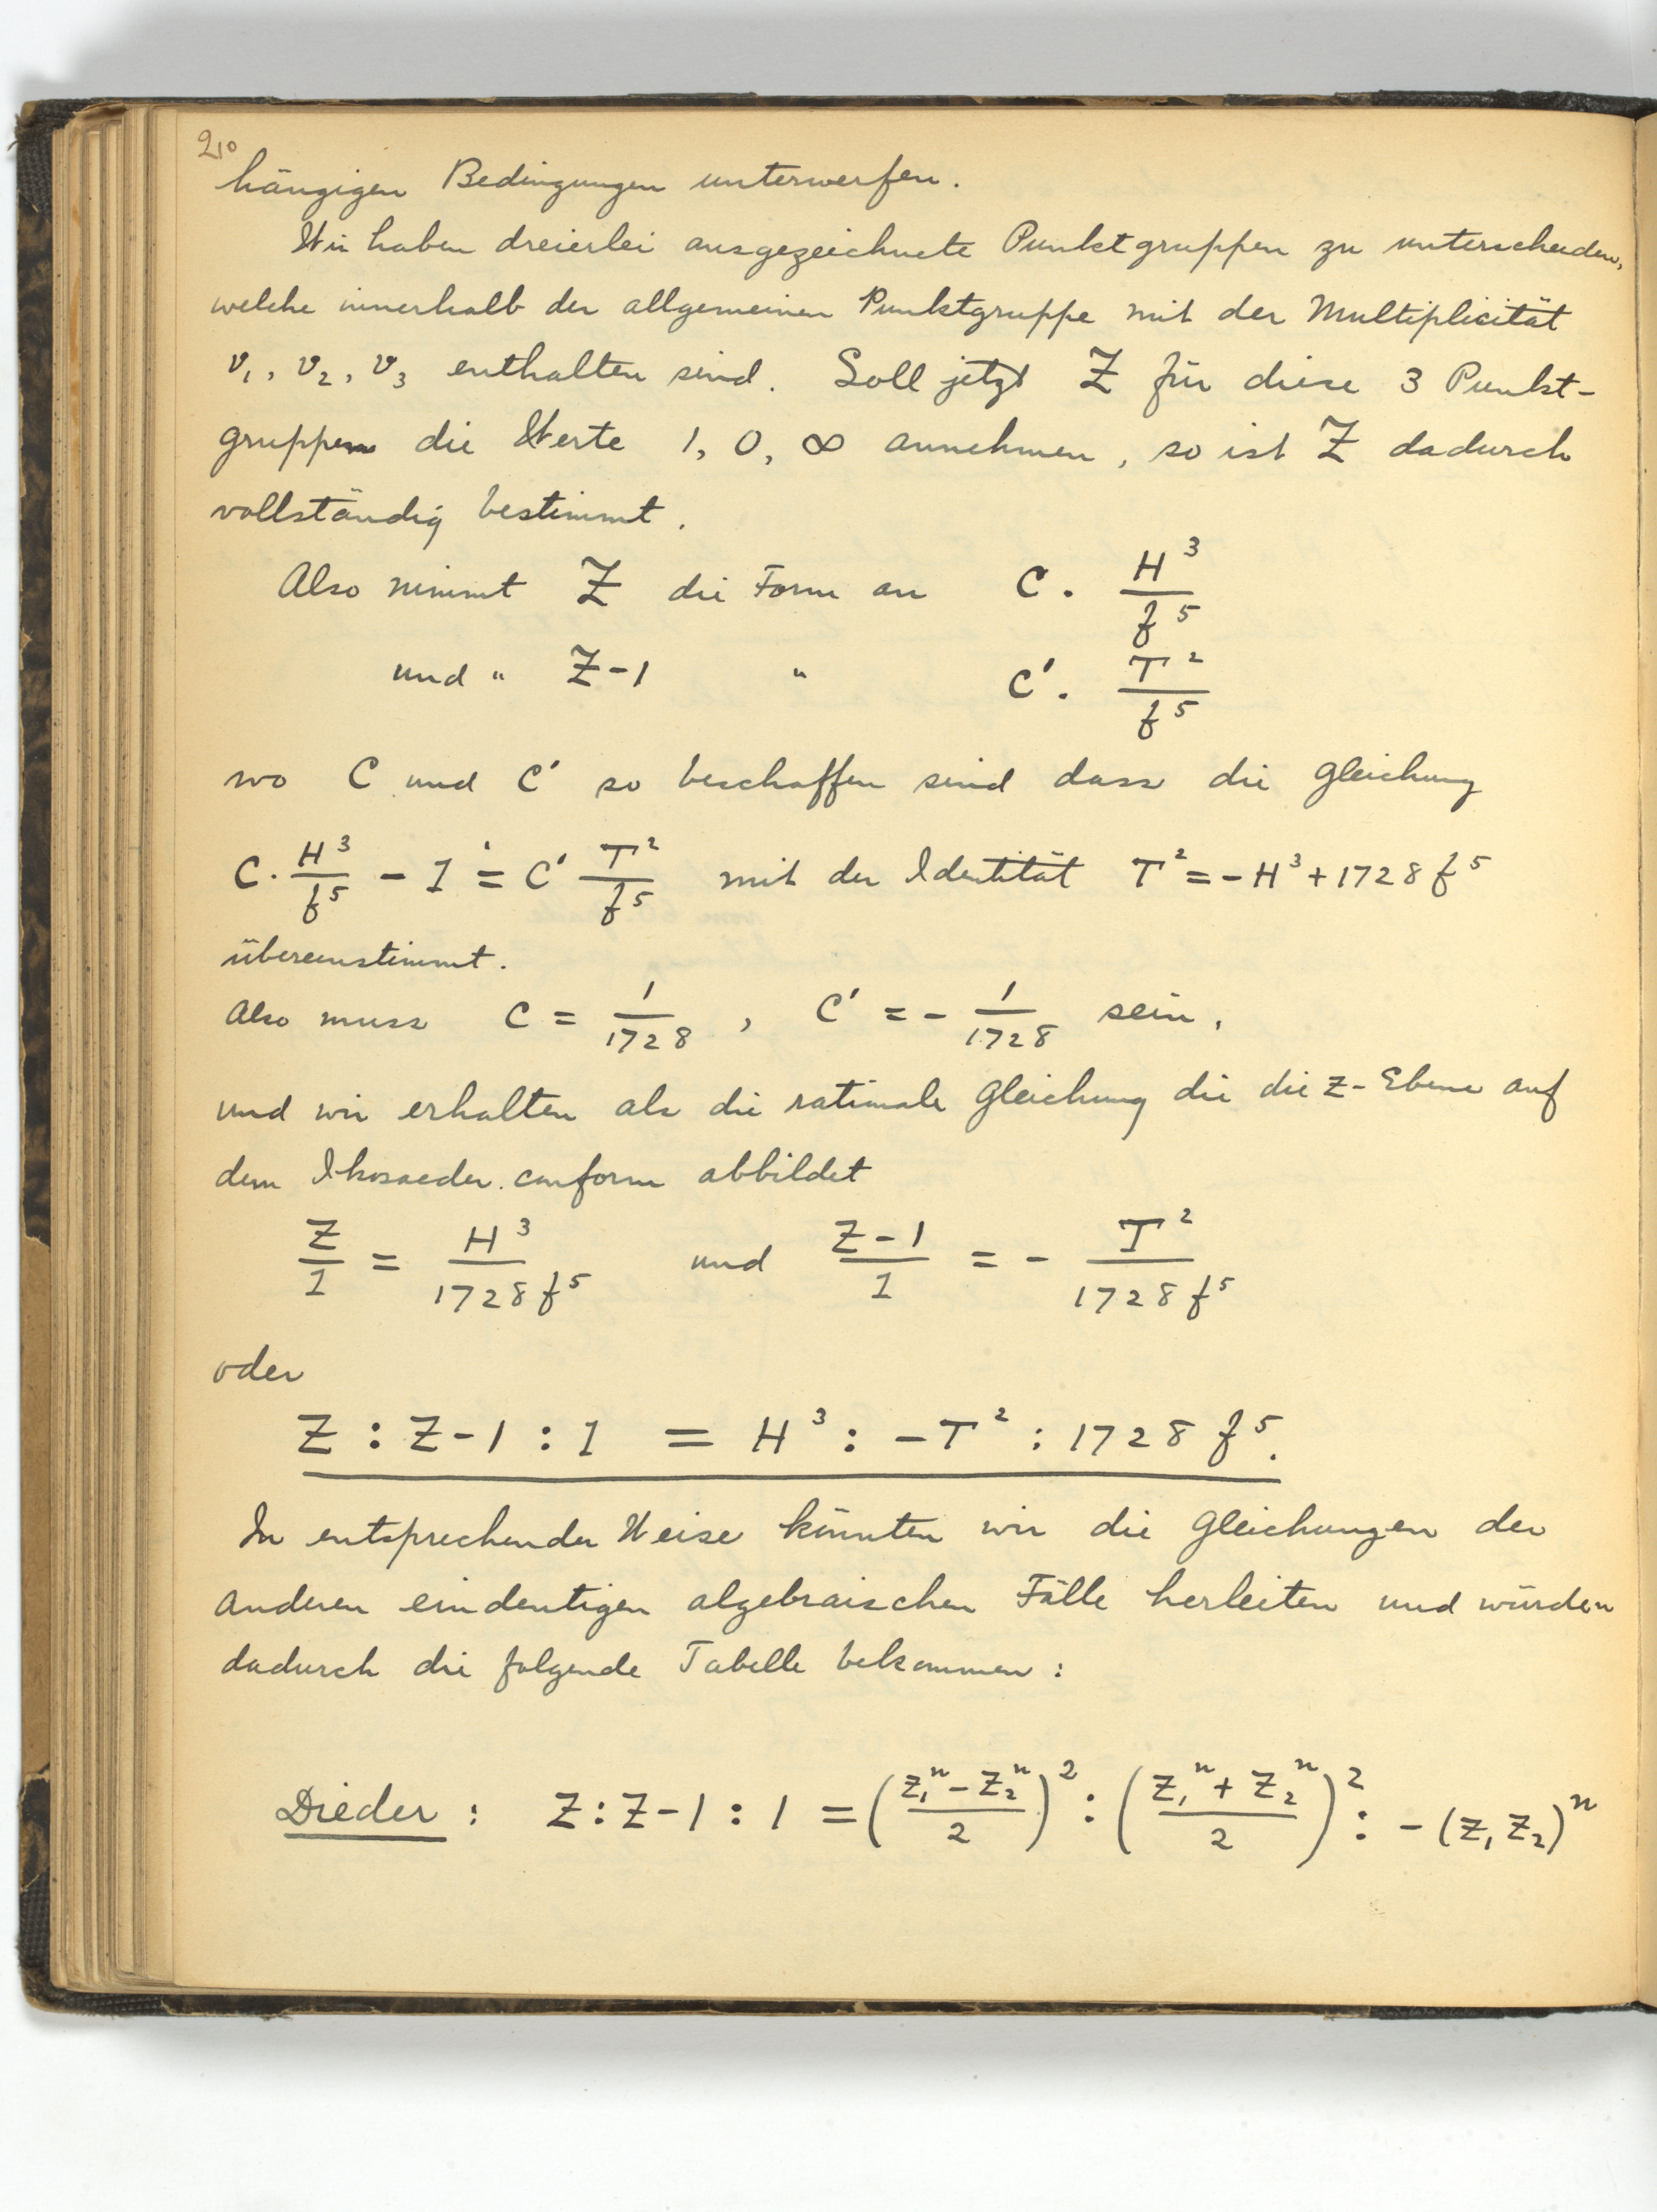 210
hängigen Bedingungen unterwerfen.
Wir haben dreierlei ausgezeichnete Punktgruppen zu unterscheiden,
welche innerhalb der allgemeinen Punktgruppe mit der Multiplicität
ν₁, ν₂, ν₃ enthalten sind. Soll jetzt Z für diese 3 Punkt-
gruppen die Werte 1, 0, ∞ annehmen, so ist Z dadurch
vollständig bestimmt.
Also nimmt Z die Form an C · H³/f⁵
und " Z-1 " C′ · T²/f⁵
wo C und C′ so beschaffen sind dass die Gleichung
C · H³/f⁵ - 1 = C′ T²/f⁵ mit der Identität T² = -H³ + 1728 f⁵
übereinstimmt.
Also muss C = 1/1728 , C′ = - 1/1728 sein,
und wir erhalten als die rationale Gleichung die die Z-Ebene auf
dem Ikosaeder conform abbildet
Z/1 = H³/1728 f⁵ und Z-1/1 = - T²/1728 f⁵
oder
Z : Z-1 : 1 = H³ : -T² : 1728 f⁵.
In entsprechender Weise könnten wir die Gleichungen der
anderen eindeutigen algebraischen Fälle herleiten und würden
dadurch die folgende Tabelle bekommen:
Dieder: Z : Z-1 : 1 = ((z₁ⁿ - z₂ⁿ)/2)² : ((z₁ⁿ + z₂ⁿ)/2)² : -(z₁ z₂)ⁿ